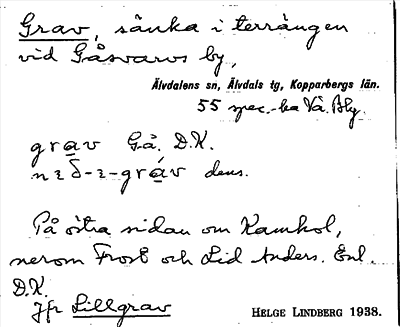 Grav, sänka i terrängen
vid Gåsvarvs by,
Älvdalens sn, Älvdals tg, Kopparbergs län.
55 spec.-ka Vä. Bly.
grav Gå. D.K.
-gráv dens.
På östra sidan om Kamhol,
nerom Frost och Lid Anders. Enl.
D.K.
Jfr Lillgrav
HELGE LINDBERG 1938.